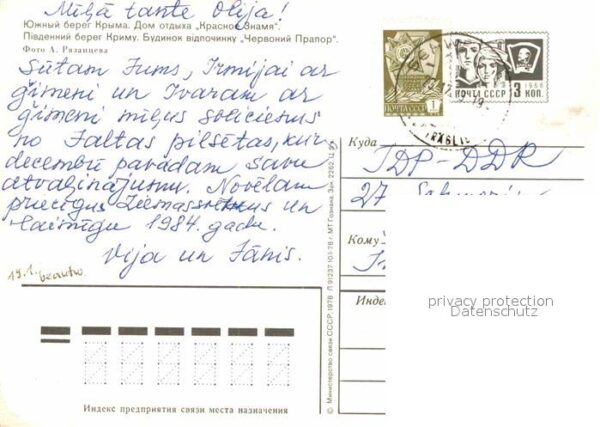 Mīļā tante Olija!
Южный берег Крыма. Дом отдыха „Красное Знамя“.
Південний берег Криму. Будинок відпочинку „Червоний Прапор“.
Фото А. Рязанцева
Sūtam Jums, Irmijai ar
ģimeni un Ivaram ar
ģimeni mīļus sveicienus
no Jaltas pilsētas, kur
decembrī pavadam savu
atvaļinājumu. Novēlam
priecīgus Ziemassvētkus un
laimīgu 1984. gadu.
Vija un Jānis.
19.1.
ПОЧТА СССР 1
1966
3 КОП.
ПОЧТА СССР
Куда
TDP-DDR
27
Кому
Индекс
privacy protection
Datenschutz
© Министерство связи СССР, 1978
Индекс предприятия связи места назначения